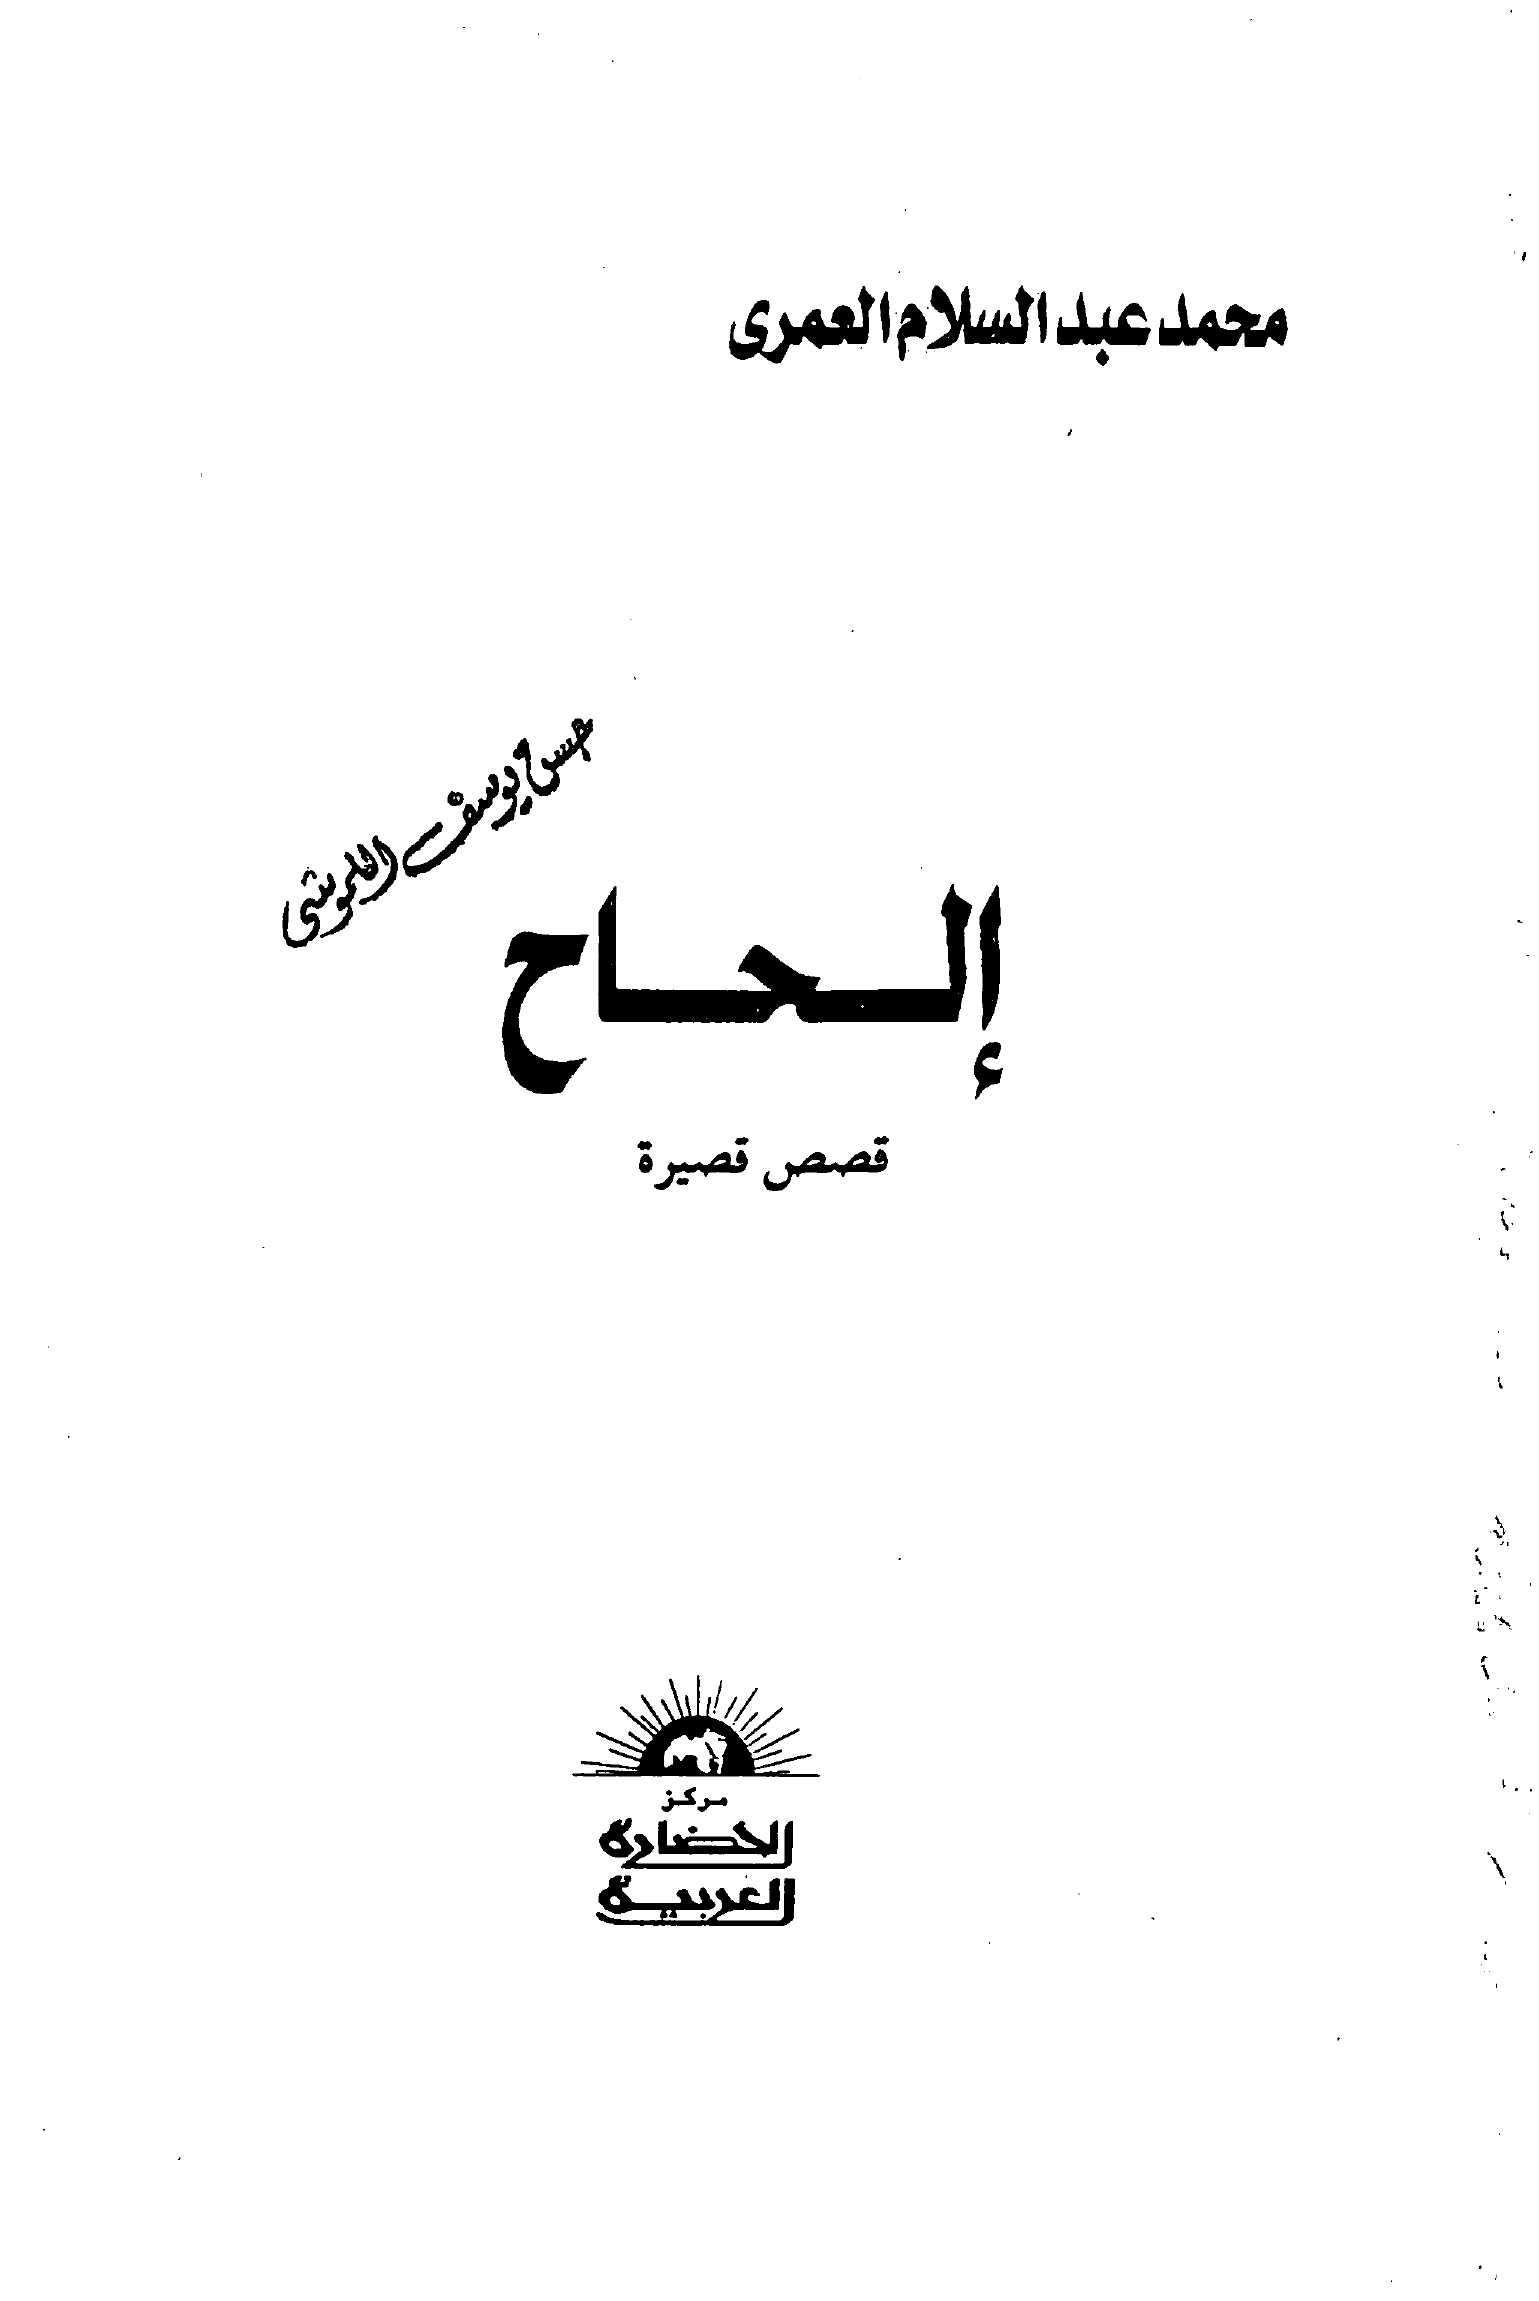 محمد عبد السلام العمرى
حسن يوسف
إلحاح
قصص قصيرة
مركز
الحضارة
العربية